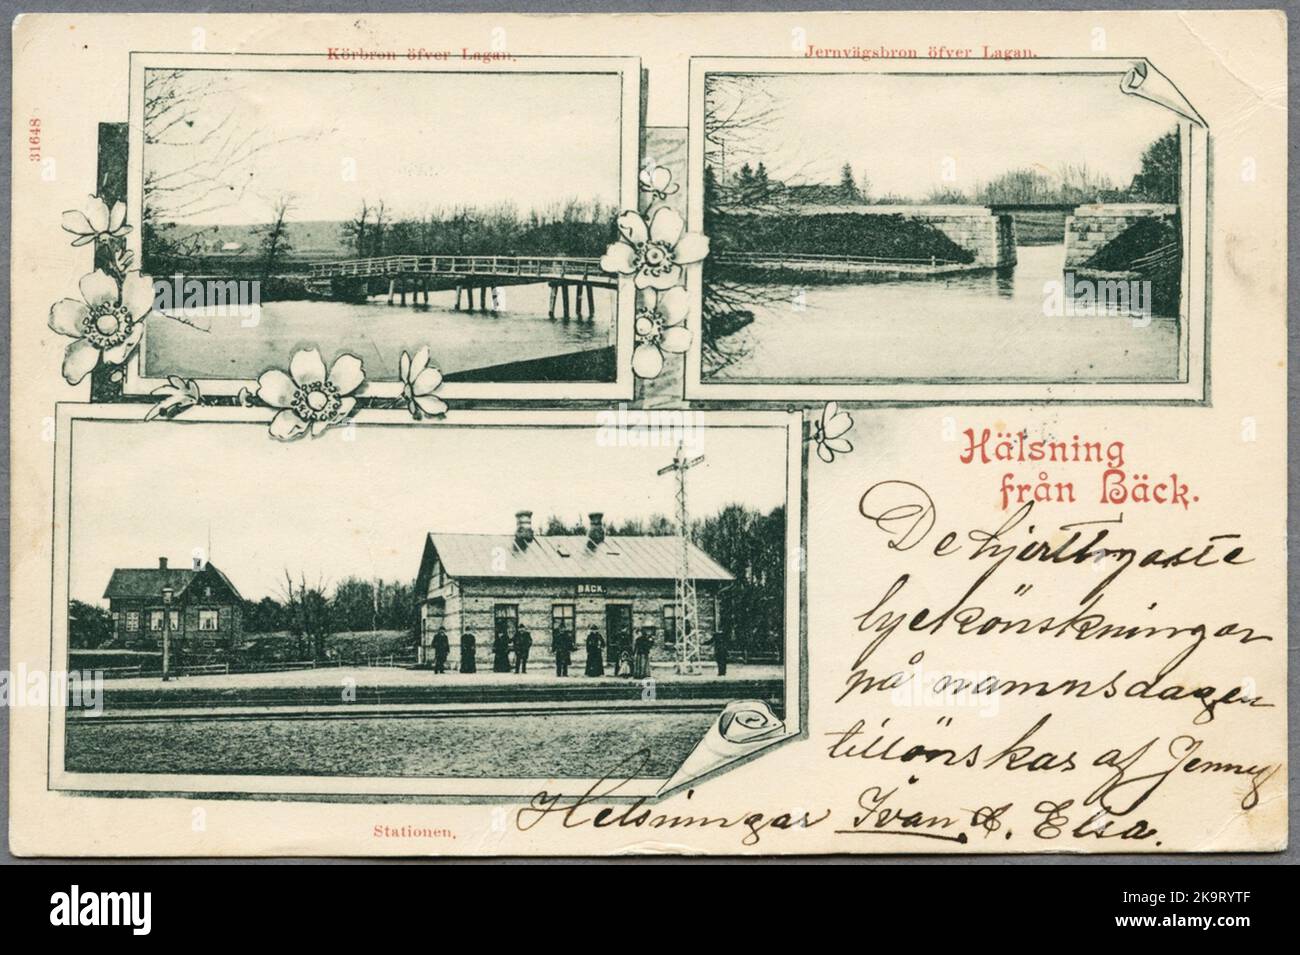 Körbron öfver Lagan.
Jernvägsbron öfver Lagan.
31648
BÄCK.
Hälsning
från Bäck.
De hjerttligaste
lyckönskningar
på namnsdagen
tillönskas af Jenny
Helsningar Ivan. & Elsa.
Stationen.
alamy
Image ID: 2K9RYTF
www.alamy.com